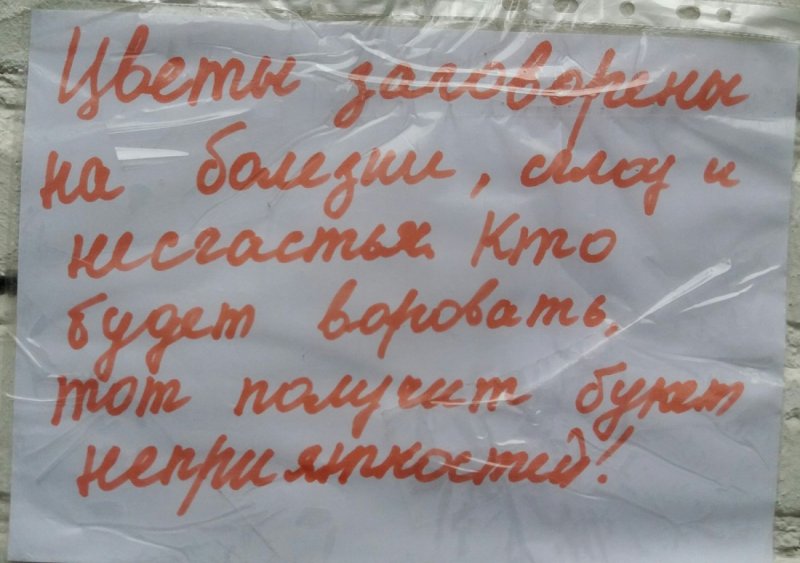 Цветы заговорены
на болезни, сглаз и
несчастья. Кто
будет воровать,
тот получит букет
неприятностей!